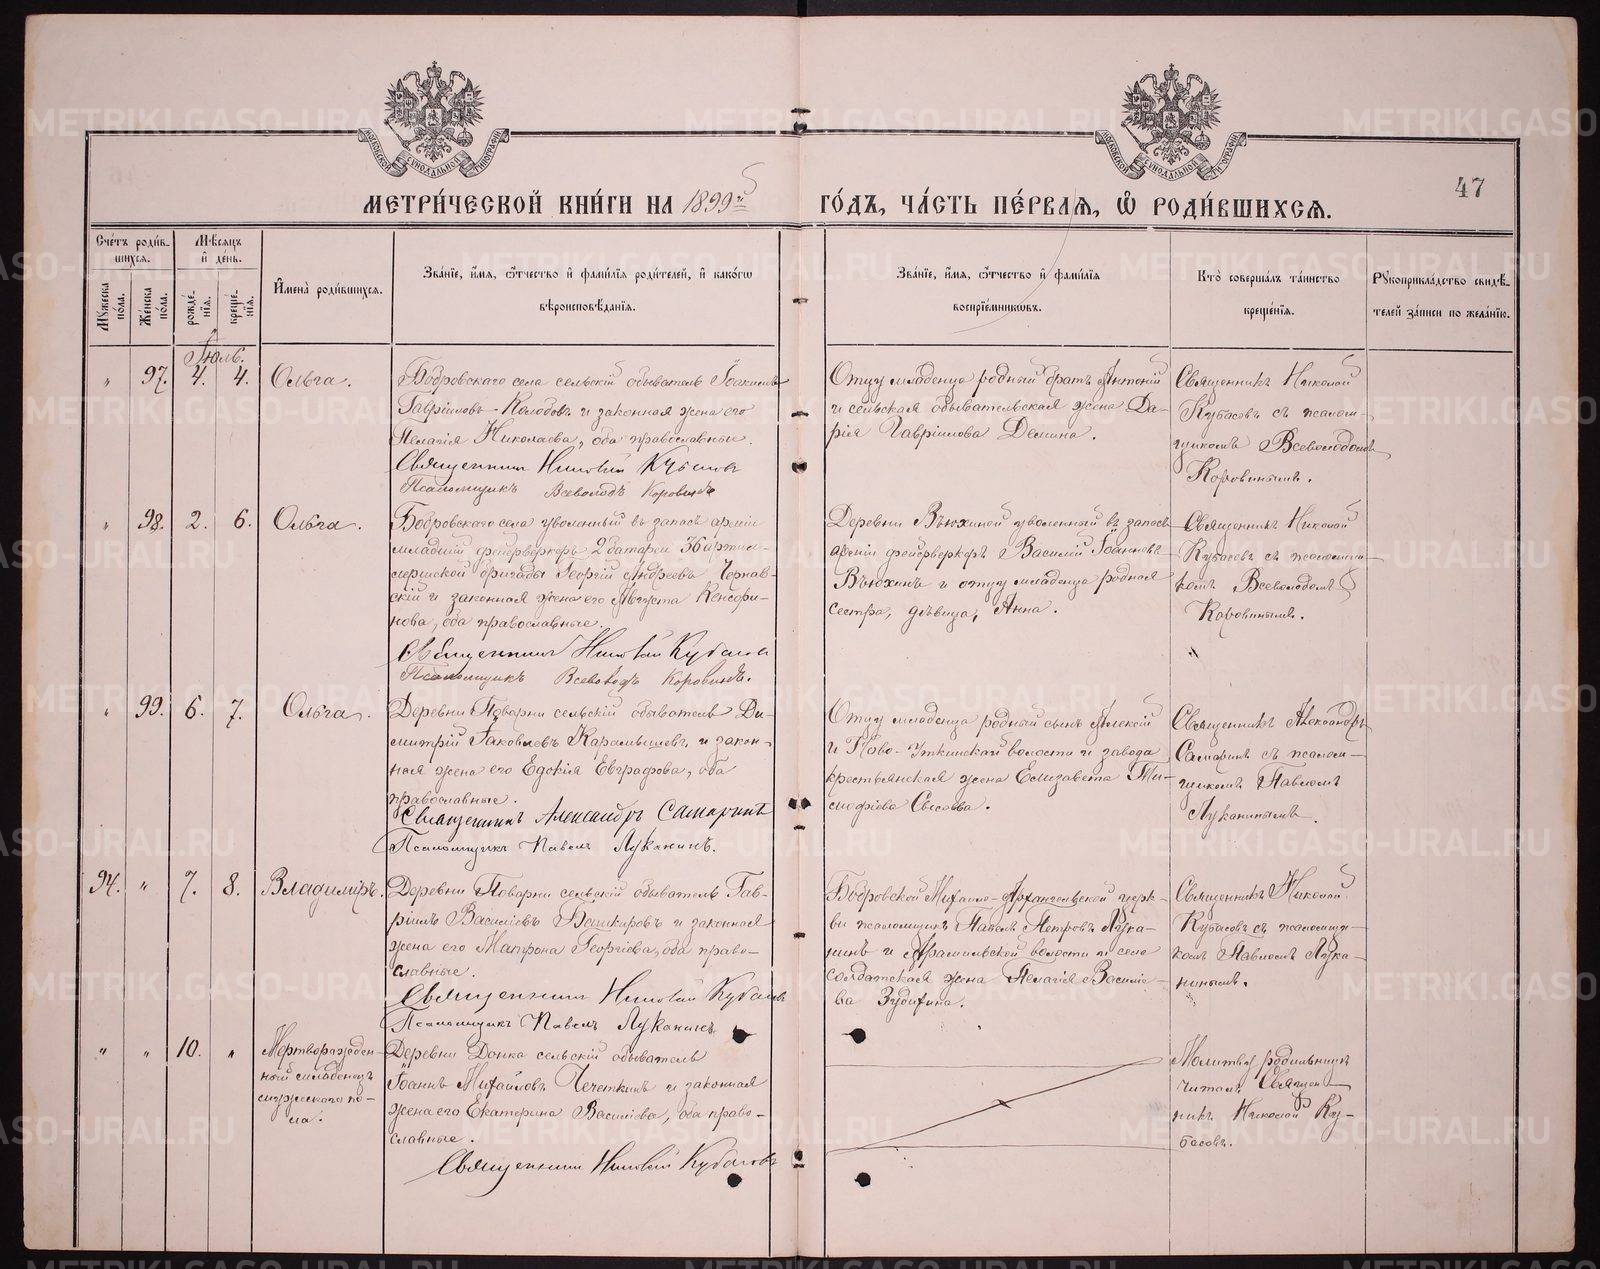 МОСКОВСКОЙ СѴНОДАЛЬНОЙ ТИПОГРАФІИ
МОСКОВСКОЙ СѴНОДАЛЬНОЙ ТИПОГРАФІИ
47
МЕТРИ́ЧЕСКОЙ КНИ́ГИ НА 1899й ГО́ДЪ, ЧА́СТЬ ПЕ́РВАѦ, Ѽ РОДИ́ВШИХСѦ.
Сче́тъ роди́в-
шихсѧ.
Мꙋ́жеска по́ла.
Же́нска по́ла.
Мѣ́сѧцъ
и҆ де́нь.
рожде́-нїѧ.
креще́-нїѧ.
И҆мена̀ роди́вшихсѧ.
Зва́нїе, и҆́мѧ, ѻ҆́тчество и҆ фами́лїѧ роди́телей, и҆ како́гѡ
вѣроисповѣ́данїѧ.
Зва́нїе, и҆́мѧ, ѻ҆́тчество и҆ фами́лїѧ
воспрїе́мникѡвъ.
Кто̀ соверша́лъ та́инство
креще́нїѧ.
Рꙋкоприкла́дство свидѣ́-
телей за́писи по жела́нїю.
Іюль.
" 97. 4. 4. Ольга.
Бобровскаго села сельскій обыватель Іоакимъ
Гавріиловъ Колобовъ и законная жена его
Пелагія Николаева, оба православные.
Священникъ Николай Кубасовъ
Псаломщикъ Всеволодъ Коровинъ
Отцу младенца родный братъ Антоній
и сельская обывательская жена Да-
рія Гавріилова Демина.
Священникъ Николай
Кубасовъ съ псалом-
щикомъ Всеволодомъ
Коровинымъ.
" 98. 2. 6. Ольга.
Бобровскаго села уволенный въ запасъ арміи
младшій фейерверкеръ 2 батареи 36 артил-
лерійской бригады Георгій Андреевъ Чернав-
скій и законная жена его Августа Кенсори-
нова, оба православные.
Священникъ Николай Кубасовъ
Псаломщикъ Всеволодъ Коровинъ.
Деревни Вьюхиной уволенный въ запасъ
арміи фейерверкеръ Василій Іоанновъ
Вьюхинъ и отцу младенца родная
сестра, дѣвица, Анна.
Священникъ Николай
Кубасовъ съ псаломщи-
комъ Всеволодомъ
Коровинымъ.
" 99. 6. 7. Ольга.
Деревни Поварни сельскій обыватель Ди-
митрій Іаковлевъ Карамышевъ и закон-
ная жена его Евдокія Евграфова, оба
православные.
Священникъ Александръ Самаринъ
Псаломщикъ Павелъ Луканинъ.
Отцу младенца родный сынъ Алексій
и Ново-Уткинской волости и завода
крестьянская жена Елизавета Ти-
мофіева
Священникъ Александръ
Самаринъ съ псалом-
щикомъ Павломъ
Луканинымъ.
94. " 7. 8. Владиміръ.
Деревни Поварни сельскій обыватель Гав-
ріилъ Василіевъ Башкировъ и законная
жена его Матрона Георгіева, оба право-
славные.
Священникъ Николай Кубасовъ
Псаломщикъ Павелъ Луканинъ
Бобровской Михаило-Архангельской церк-
ви псаломщикъ Павелъ Петровъ Лука-
нинъ и Арамильской волости и села
солдатская жена Пелагія Василіе-
ва
Священникъ Николай
Кубасовъ съ псаломщи-
комъ Павломъ Лука-
нинымъ.
" " 10. "
Мертворожден-
ный младенецъ
мужескаго по-
ла.
Деревни Донка сельскій обыватель
Іоаннъ Михайловъ Чечеткинъ и законная
жена его Екатерина Василіева, оба право-
славные.
Священникъ Николай Кубасовъ
Молитву родильницѣ
читалъ Священ-
никъ Николай Ку-
басовъ.
METRIKI.GASO-URAL.RU